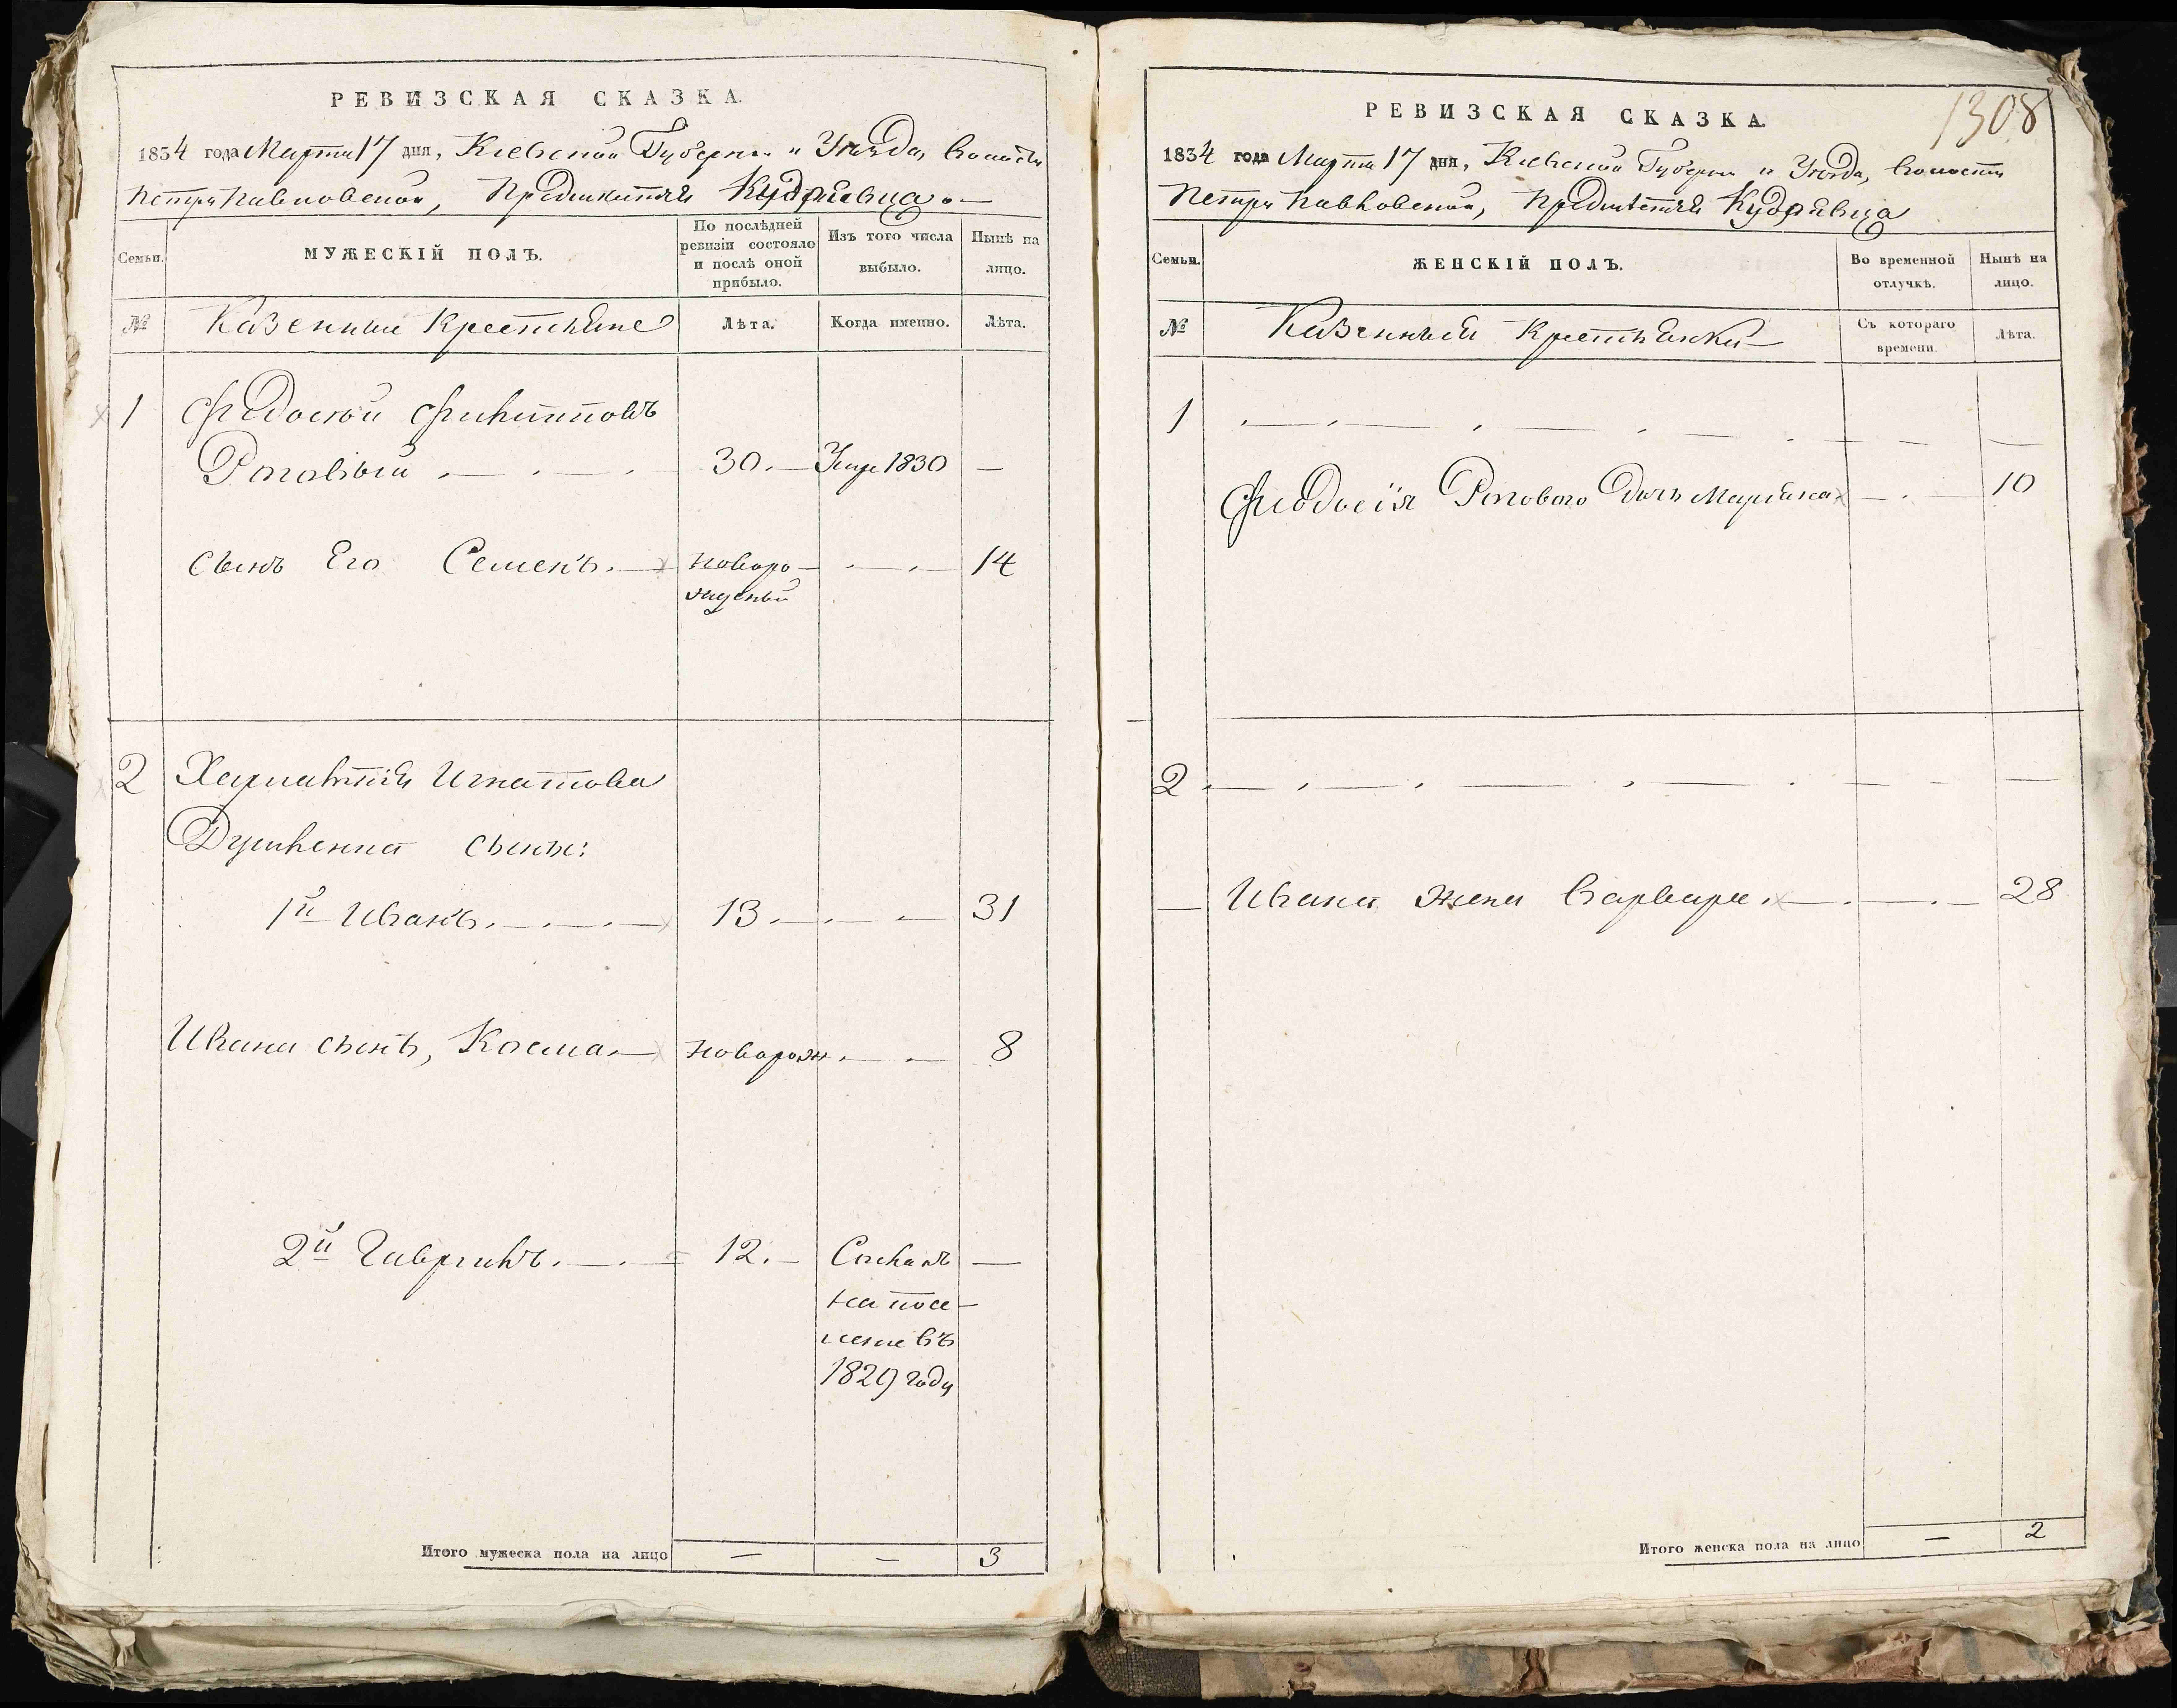 РЕВИЗСКАЯ СКАЗКА.
1834 года Марта 17 дня, Кіевской Губерніи и Уезда, Волости
Петропавловской, Предместья Кудрявца.
Семьи.
МУЖЕСКІЙ ПОЛЪ.
По послѣдней ревизіи состояло и послѣ оной прибыло.
Изъ того числа выбыло.
Нынѣ на лицо.
№
Казенные Крестьяне
Лѣта.
Когда именно.
Лѣта.
1 Федосей Филипповъ
Роговый 30. — Умре 1830 —
сынъ Его Семенъ. — новоро- 14
жденый
2 Игнатова
сыны:
1й Иванъ. 13. 31
Ивана сынъ, Косма. — новорож. 8
2й Гаврилъ. 12. — Сосланъ —
на посе-
ленiе въ
1829 году
Итого мужеска пола на лицо — — 3
1308
РЕВИЗСКАЯ СКАЗКА
1834 года Марта 17 дня, Кіевской Губерніи и Уезда, Волости
Петропавловской, Предместья Кудрявца
Семьи.
ЖЕНСКІЙ ПОЛЪ.
Во временной отлучкѣ.
Нынѣ на лицо.
№
Казенныя Крестьянки
Съ котораго времени.
Лѣта.
1
Феодосія Рогового дочь Марьяна 10
2
— Ивана жена Варвара. 28
Итого женска пола на лицо — 2